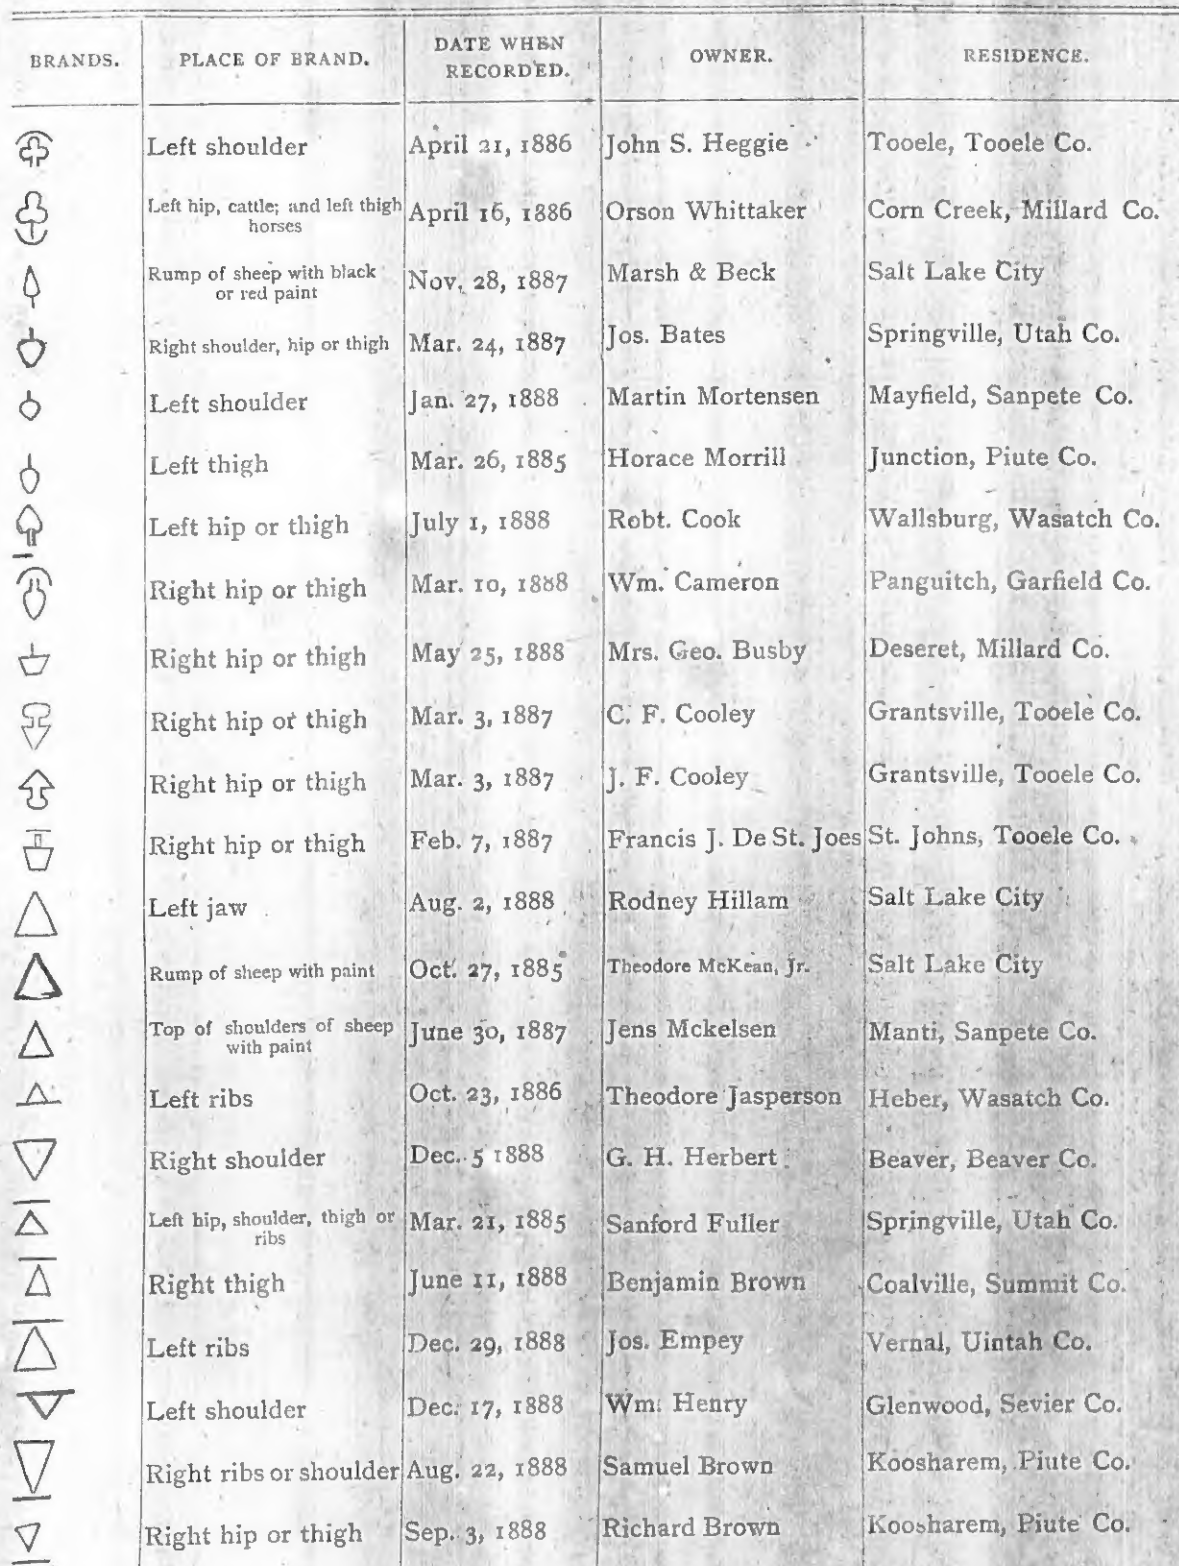 BRANDS. PLACE OF BRAND. DATE WHEN RECORDED. OWNER. RESIDENCE.
Left shoulder April 21, 1886 John S. Heggie Tooele, Tooele Co.
Left hip, cattle; and left thigh horses April 16, 1886 Orson Whittaker Corn Creek, Millard Co.
Rump of sheep with black or red paint Nov. 28, 1887 Marsh & Beck Salt Lake City
Right shoulder, hip or thigh Mar. 24, 1887 Jos. Bates Springville, Utah Co.
Left shoulder Jan. 27, 1888 Martin Mortensen Mayfield, Sanpete Co.
Left thigh Mar. 26, 1885 Horace Morrill Junction, Piute Co.
Left hip or thigh July 1, 1888 Robt. Cook Wallsburg, Wasatch Co.
Right hip or thigh Mar. 10, 1888 Wm. Cameron Panguitch, Garfield Co.
Right hip or thigh May 25, 1888 Mrs. Geo. Busby Deseret, Millard Co.
Right hip or thigh Mar. 3, 1887 C. F. Cooley Grantsville, Tooele Co.
Right hip or thigh Mar. 3, 1887 J. F. Cooley Grantsville, Tooele Co.
Right hip or thigh Feb. 7, 1887 Francis J. De St. Joes St. Johns, Tooele Co.
Left jaw Aug. 2, 1888 Rodney Hillam Salt Lake City
Rump of sheep with paint Oct. 27, 1885 Theodore McKean, Jr. Salt Lake City
Top of shoulders of sheep with paint June 30, 1887 Jens Mckelsen Manti, Sanpete Co.
Left ribs Oct. 23, 1886 Theodore Jasperson Heber, Wasatch Co.
Right shoulder Dec. 5 1888 G. H. Herbert Beaver, Beaver Co.
Left hip, shoulder, thigh or ribs Mar. 21, 1885 Sanford Fuller Springville, Utah Co.
Right thigh June 11, 1888 Benjamin Brown Coalville, Summit Co.
Left ribs Dec. 29, 1888 Jos. Empey Vernal, Uintah Co.
Left shoulder Dec. 17, 1888 Wm. Henry Glenwood, Sevier Co.
Right ribs or shoulder Aug. 22, 1888 Samuel Brown Koosharem, Piute Co.
Right hip or thigh Sep. 3, 1888 Richard Brown Koosharem, Piute Co.